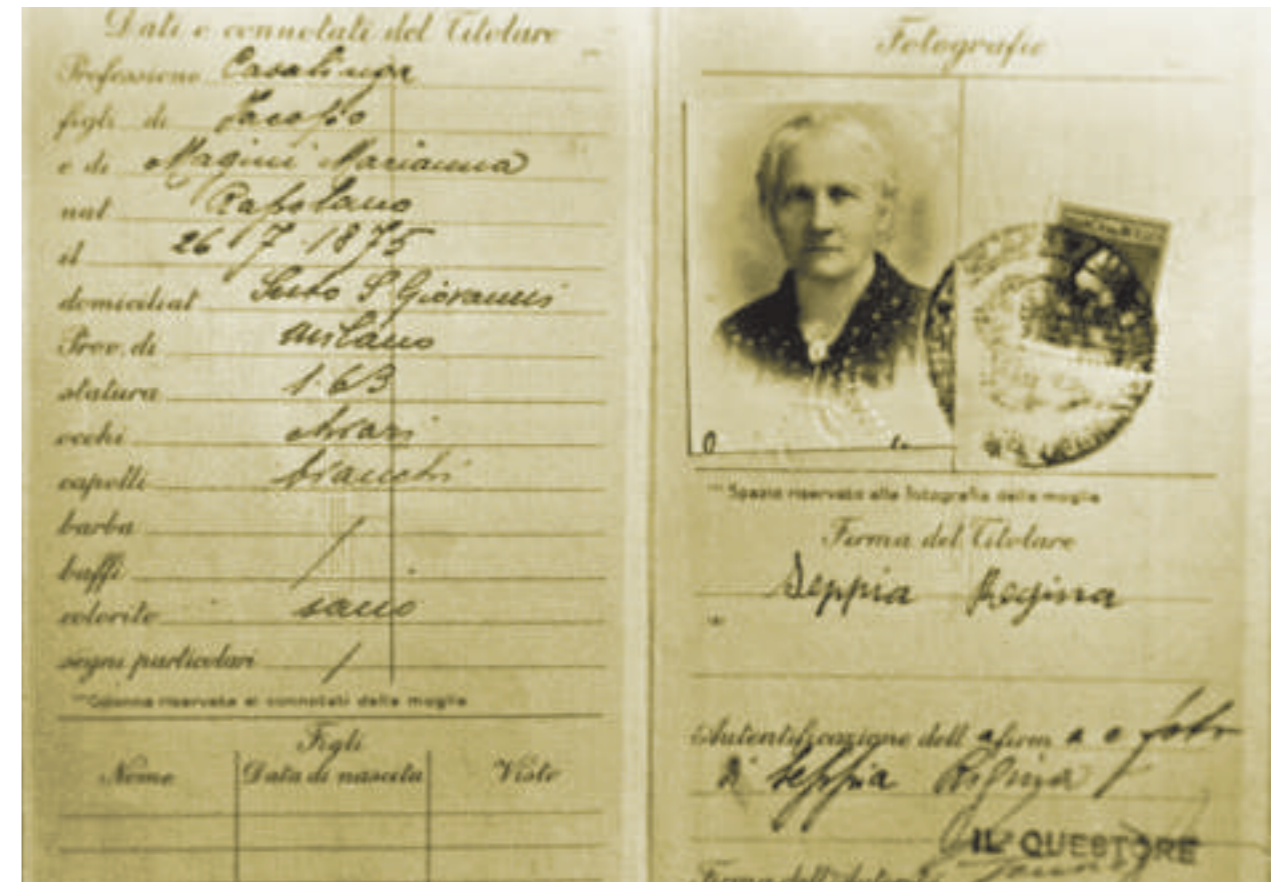 Dati e connotati del Titolare
Professione Casalinga
figli di Jacopo
e di Magini Marianna
nat Rapolano
il 26 7 1875
domiciliat Sesto S Giovanni
Prov. di Milano
statura 1.63
occhi chiari
capelli bianchi
barba /
baffi
colorito sano
segni particolari /
Colonna riservata ai connotati della moglie
Figli
Nome Data di nascita Visto
Fotografie
Spazio riservato alla fotografia della moglie
Firma del Titolare
Seppia Regina
Autentificazione dell a firm a e foto
di Seppia Regina
IL QUESTORE
Firma dell'Autorità